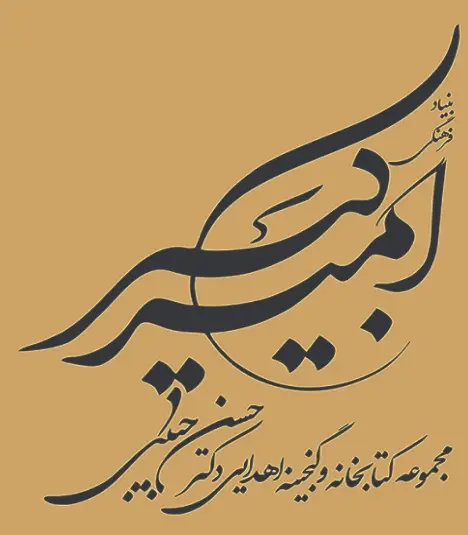 بنیاد
فرهنگی
امیرکبیر
مجموعه کتابخانه و گنجینه اهدایی دکتر حسن حبیبی